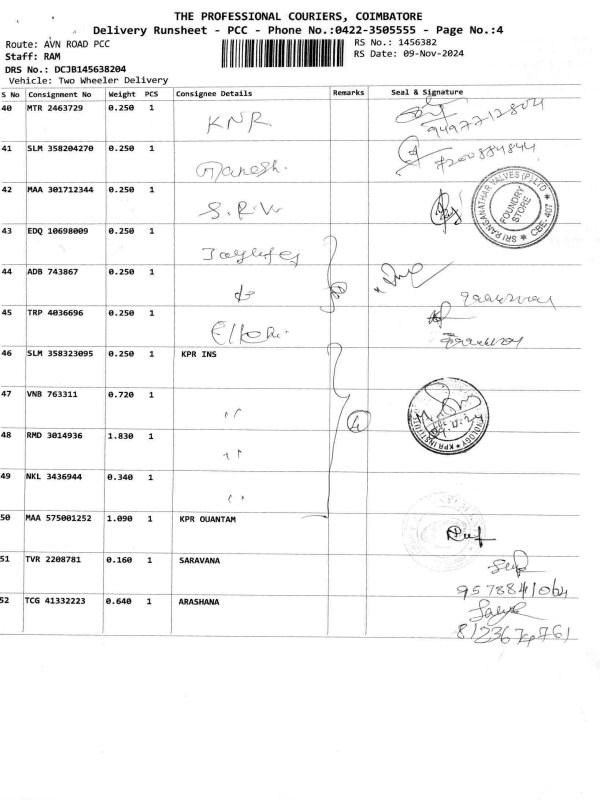 THE PROFESSIONAL COURIERS, COIMBATORE
Delivery Runsheet - PCC - Phone No.:0422-3505555 - Page No.:4
Route: AVN ROAD PCC
RS No.: 1456382
Staff: RAM
RS Date: 09-Nov-2024
DRS No.: DCJB145638204
Vehicle: Two Wheeler Delivery
S No Consignment No Weight PCS Consignee Details Remarks Seal & Signature
40 MTR 2463729 0.250 1 KNR 9497712804
41 SLM 358204270 0.250 1 Manesh. 7200884844
42 MAA 301712344 0.250 1 S.R.W
SRI RANGANATHAR VALVES (P) LTD CBE-407
FOUNDRY STORE
43 EDQ 10698009 0.250 1
44 ADB 743867 0.250 1
45 TRP 4036696 0.250 1
46 SLM 358323095 0.250 1 KPR INS
47 VNB 763311 0.720 1 ,, 4
KPR INSTITUTE
48 RMD 3014936 1.830 1 ,,
49 NKL 3436944 0.340 1 ,,
50 MAA 575001252 1.090 1 KPR OUANTAM
51 TVR 2208781 0.160 1 SARAVANA
9578841064
52 TCG 41332223 0.640 1 ARASHANA